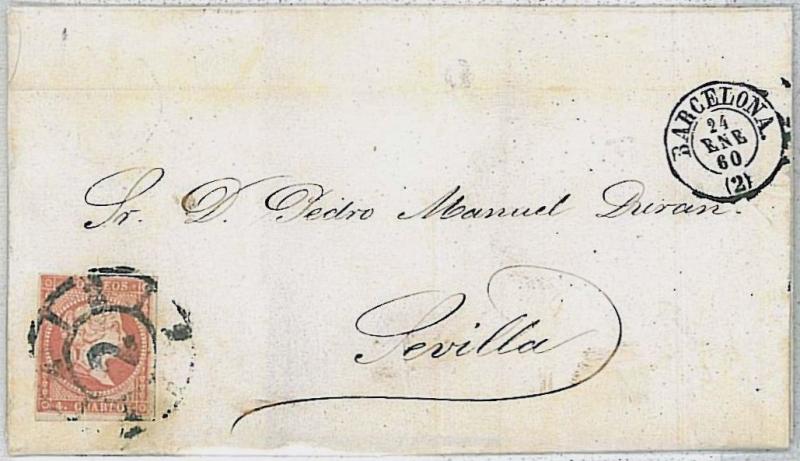 BARCELONA.
24
ENE
60
(2)
Sr. D. Pedro Manuel Duran.
Sevilla
CORREOS
2
4. CUARTOS